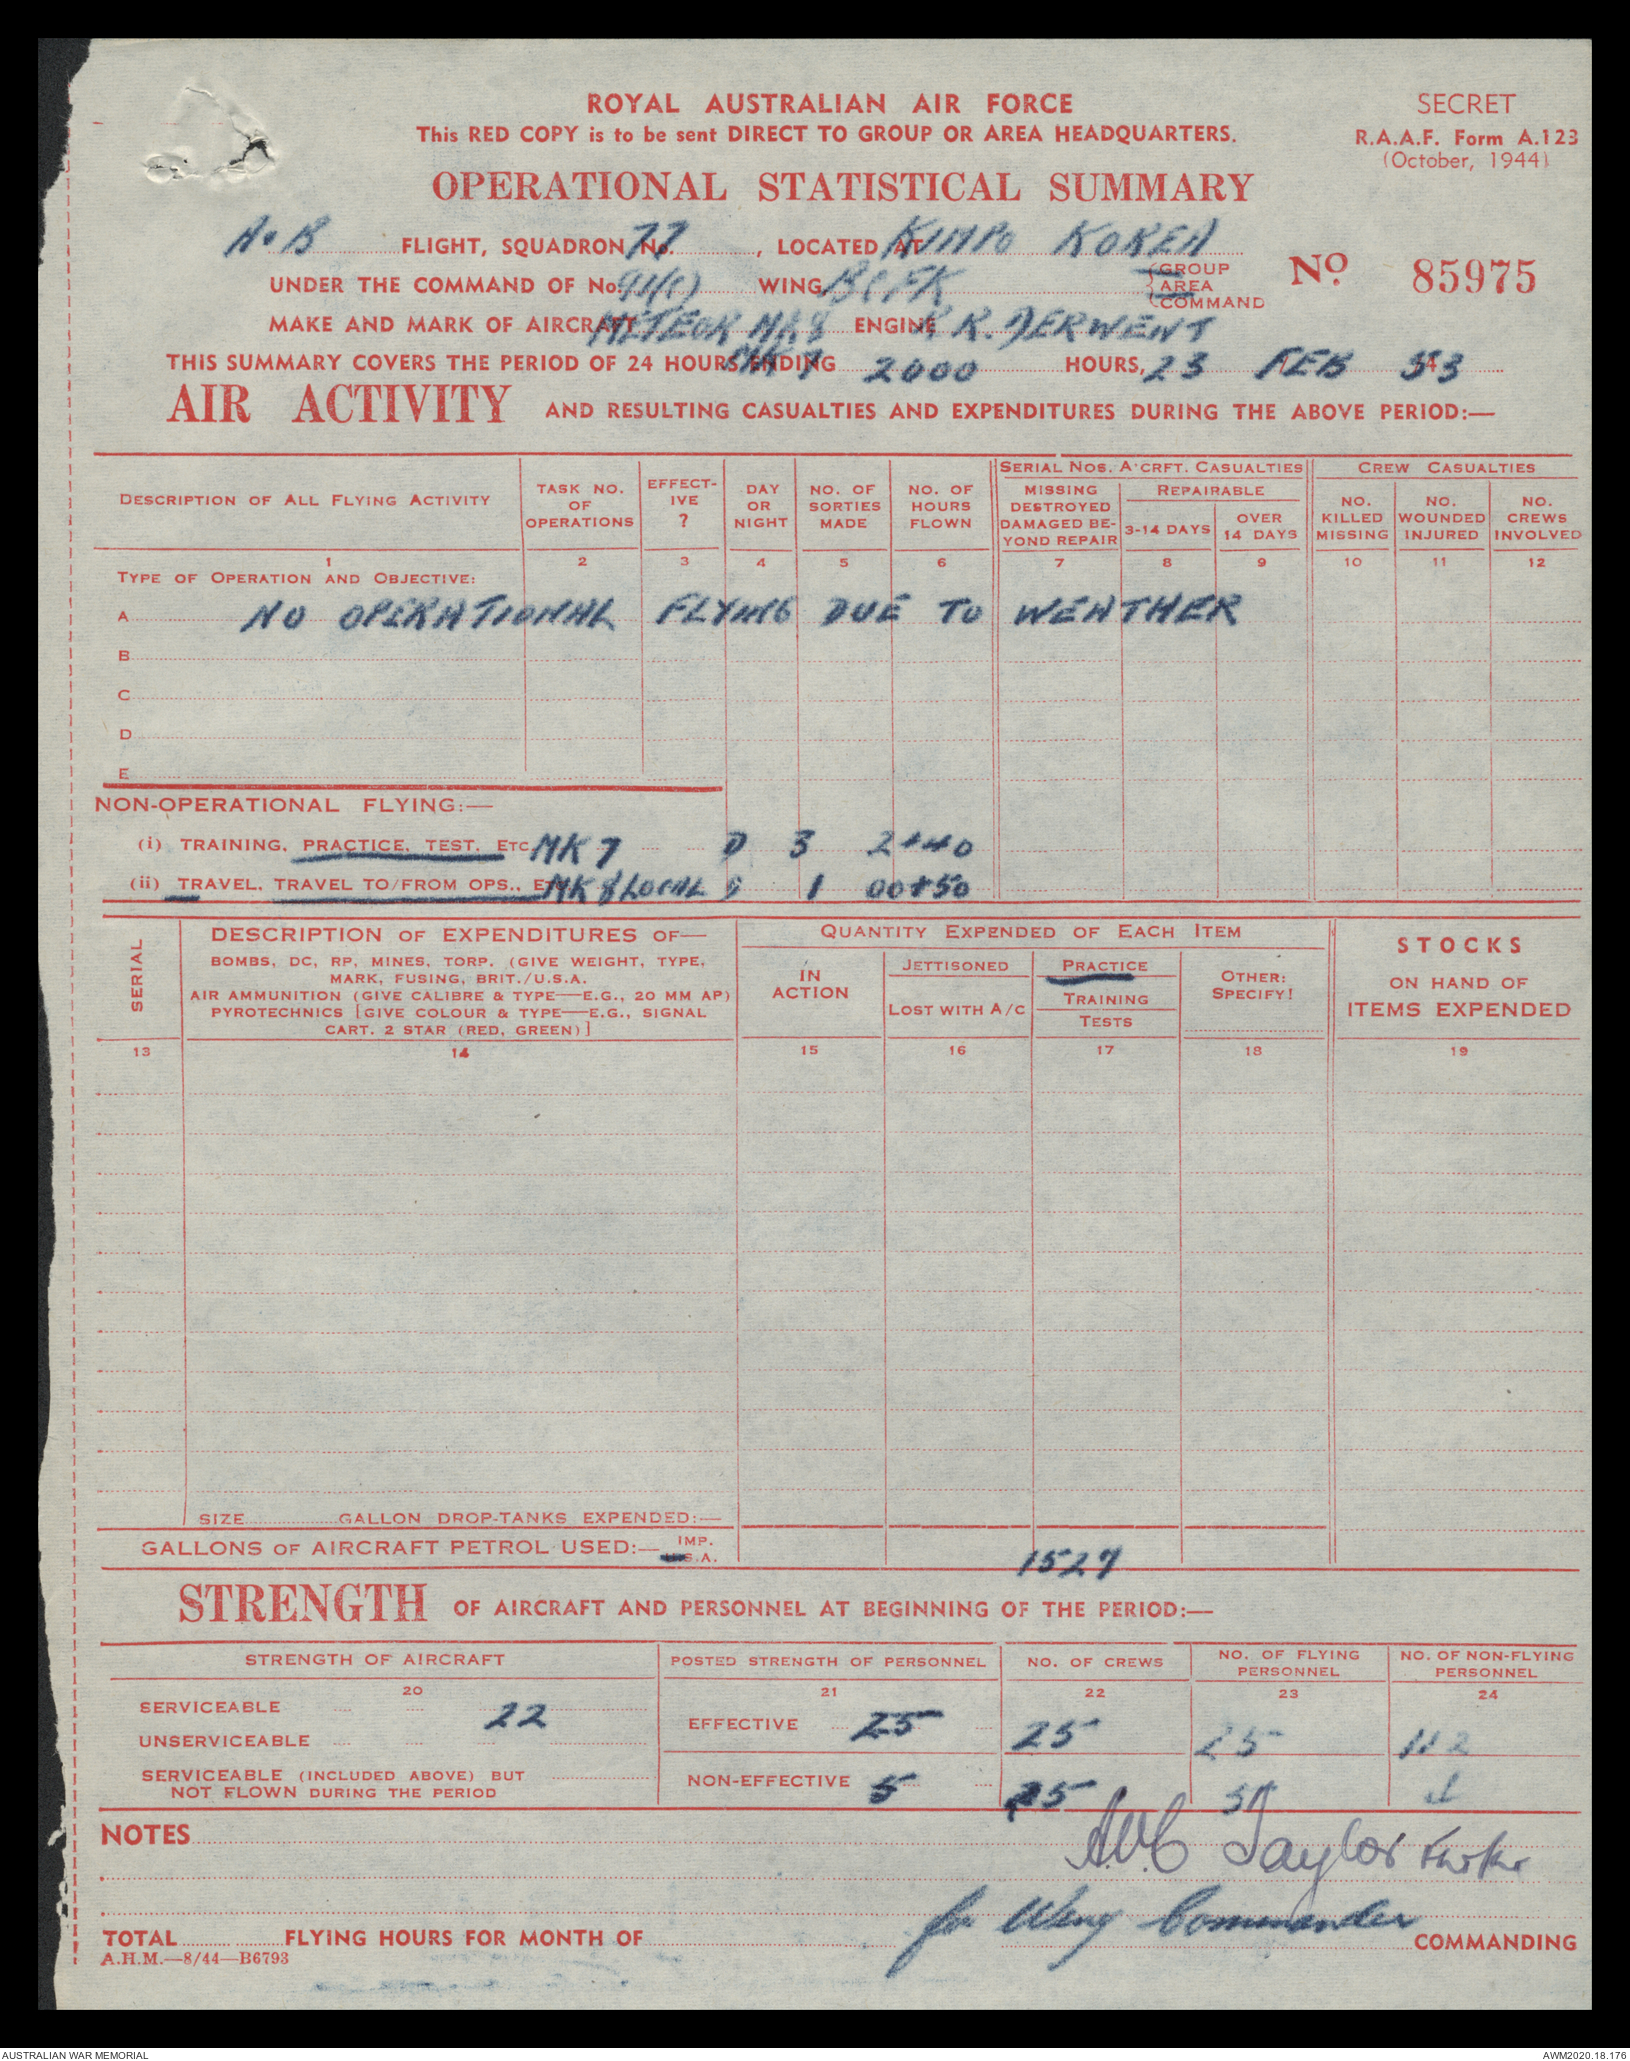 ROYAL AUSTRALIAN AIR FORCE
This RED COPY is to be sent DIRECT TO GROUP OR AREA HEADQUARTERS.
SECRET
R.A.A.F. Form A.123
(October, 1944)
OPERATIONAL STATISTICAL SUMMARY
A.B FLIGHT, SQUADRON No. 77, LOCATED AT KIMPO KOREA
UNDER THE COMMAND OF No. 91(C) WING, BCFK {GROUP AREA COMMAND
No 85975
MAKE AND MARK OF AIRCRAFT METEOR MK 8 ENGINE R.R. DERWENT
MK 7
THIS SUMMARY COVERS THE PERIOD OF 24 HOURS ENDING 2000 HOURS, 23 FEB 53
AIR ACTIVITY AND RESULTING CASUALTIES AND EXPENDITURES DURING THE ABOVE PERIOD:—
DESCRIPTION OF ALL FLYING ACTIVITY
TASK NO. OF OPERATIONS
EFFECT-IVE ?
DAY OR NIGHT
NO. OF SORTIES MADE
NO. OF HOURS FLOWN
SERIAL NOS. A'CRFT. CASUALTIES
MISSING DESTROYED DAMAGED BE-YOND REPAIR
REPAIRABLE
3-14 DAYS
OVER 14 DAYS
CREW CASUALTIES
NO. KILLED MISSING
NO. WOUNDED INJURED
NO. CREWS INVOLVED
1 2 3 4 5 6 7 8 9 10 11 12
TYPE OF OPERATION AND OBJECTIVE:
A NO OPERATIONAL FLYING DUE TO WEATHER
B
C
D
E
NON-OPERATIONAL FLYING:—
(i) TRAINING, PRACTICE, TEST, ETC MK 7 D 3 2+40
(ii) TRAVEL, TRAVEL TO/FROM OPS., ETC MK 8 LOCAL 1 00+50
SERIAL
DESCRIPTION OF EXPENDITURES OF—
BOMBS, DC, RP, MINES, TORP. (GIVE WEIGHT, TYPE,
MARK, FUSING, BRIT./U.S.A.
AIR AMMUNITION (GIVE CALIBRE & TYPE—E.G., 20 MM AP)
PYROTECHNICS [GIVE COLOUR & TYPE—E.G., SIGNAL
CART. 2 STAR (RED, GREEN)]
QUANTITY EXPENDED OF EACH ITEM
IN ACTION
JETTISONED
LOST WITH A/C
PRACTICE
TRAINING
TESTS
OTHER: SPECIFY!
STOCKS
ON HAND OF
ITEMS EXPENDED
13 14 15 16 17 18 19
SIZE GALLON DROP-TANKS EXPENDED:—
GALLONS OF AIRCRAFT PETROL USED:— IMP. U.S.A. 1527
STRENGTH OF AIRCRAFT AND PERSONNEL AT BEGINNING OF THE PERIOD:—
STRENGTH OF AIRCRAFT
POSTED STRENGTH OF PERSONNEL
NO. OF CREWS
NO. OF FLYING PERSONNEL
NO. OF NON-FLYING PERSONNEL
20 21 22 23 24
SERVICEABLE 22
EFFECTIVE 25 25 25 112
UNSERVICEABLE
SERVICEABLE (INCLUDED ABOVE) BUT
NOT FLOWN DURING THE PERIOD
NON-EFFECTIVE 5 5 5
NOTES
Taylor
for Wing Commander
TOTAL FLYING HOURS FOR MONTH OF COMMANDING
A.H.M.—8/44—B6793
AUSTRALIAN WAR MEMORIAL
AWM2020.18.176